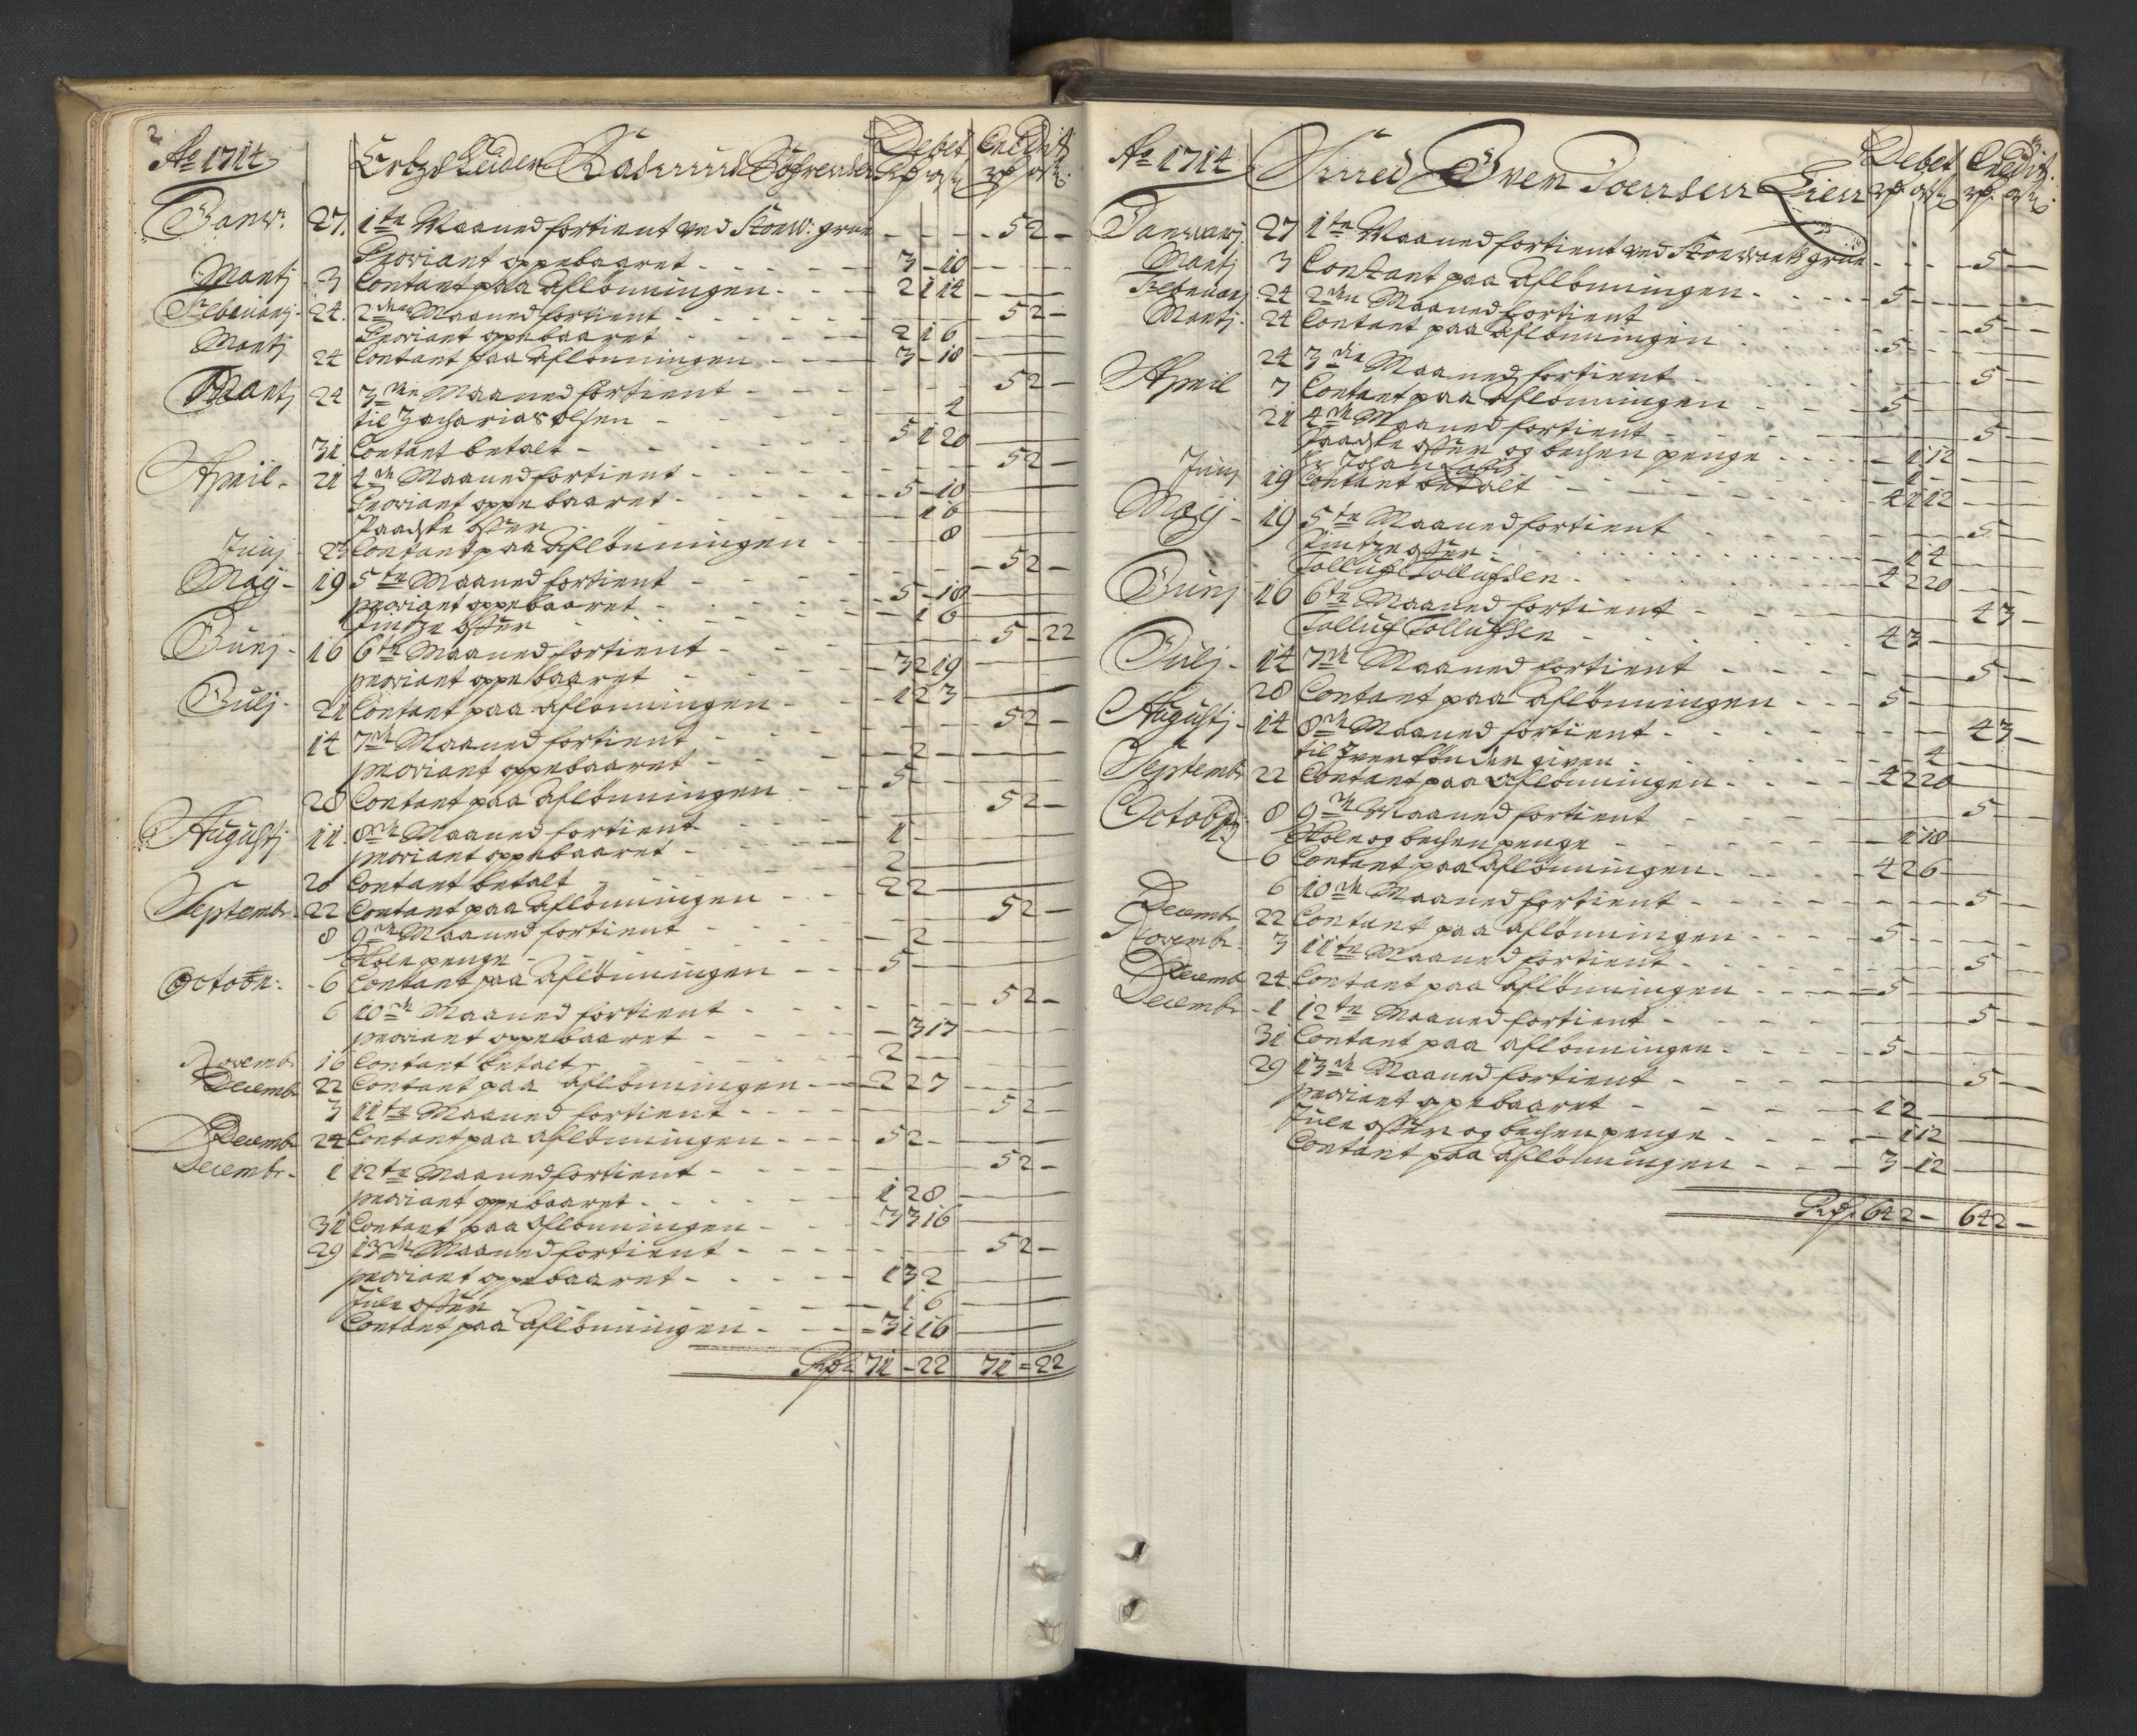 2
Ao 1714
Debet Credit
Janu: 27. 1te Maaned fortient ved Stoew: grue - - - 52 -
Proviant oppebaaret - - - 3 - 18
Martj 3 Contant paa Aflönningen - - - 2 1 14
Februarj 24. 2den Maaned fortient - - - 52 -
Proviant oppebaaret - - - 2 1 6
Martj 24 Contant paa Aflönningen - - - 3 - 18
Martj 24 3die Maaned fortient - - - 52 -
til Zacharias olsen - - 2
31 Contant betalt - - - 5 1 20
April - 21 4de Maaned fortient - - - 52 -
Proviant oppebaaret - - - 5 - 18
Paaske offer - - - 1 6
Junj 23 Contant paa Aflönningen - - - 8
Maij - 19 5te Maaned fortient - - - 52 -
proviant oppebaaret - - - 5 - 18
Pintze offer - - - 1 6
Junj - 16 6te Maaned fortient - - - 5 - 22
proviant oppebaaret - - - 3 2 19
Julj - 21 Contant paa Aflönningen - - - 1 2 3
14 7de Maaned fortient - - - 52 -
proviant oppebaaret - - - 2 -
28 Contant paa Aflönningen - - - 5 -
Augustj 11. 8de Maaned fortient - - - 52 -
proviant oppebaaret - - - 1 -
28 Contant betalt - - - 2 -
Septembr 22 Contant paa Aflönningen - - - 2 2
8 9de Maaned fortient - - - 52 -
Skole penge - - - 2 -
Octobr: - 6 Contant paa Aflönningen - - - 5 -
6 10de Maaned fortient - - - 52 -
proviant oppebaaret - - - 3 17
Novembr 16 Contant betalt - - - 2 -
Decembr 22 Contant paa Aflönningen - - - 2 2 7
3 11te Maaned fortient - - - 52 -
Decembr 24 Contant paa Aflönningen - - - 52 -
Decembr - 1 12te Maaned fortient - - - 52 -
proviant oppebaaret - - - 1 2 8
31 Contant paa Aflönningen - - - 3 3 16
29 13de Maaned fortient - - - 52 -
proviant oppebaaret - - - 1 3 2
Jule offer - - - 1 6
Contant paa Aflönningen - - - 3 1 16
Rdr 71 - 22 71 - 22
3
Ao 1714 Smed Sven Joensen Lier
Debet Credit
Januarj 27 1te Maaned fortient ved Stoewaats grue - - - 5 -
Martj 3 Contant paa Aflönningen - - - 5 -
Februarj 24 2den Maaned fortient - - - 5 -
Martj - 24 Contant paa Aflönningen - - - 5 -
24 3die Maaned fortient - - - 5 -
April 7 Contant paa Aflönningen - - - 5 -
21 4de Maaned fortient - - - 5 -
Paaske offer og bechen penge - - - 1 12
Junj 19 Contant betalt - - - 4 1 12
Maij - 19 5te Maaned fortient - - - 5 -
Pintze offer - - - 1 4
Tolluf Tollufsen - - - 4 2 20
Junj - 16 6te Maaned fortient - - - 43 -
Tolluf Tollufsen - - - 43 -
Julj - 14 7de Maaned fortient - - - 5 -
28 Contant paa Aflönningen - - - 5 -
Augustj - 14 8de Maaned fortient - - - 43 -
til given - - - 4
Septembr 22 Contant paa Aflönningen - - - 4 2 20
Octobr 8 9de Maaned fortient - - - 5 -
Skole og bechen penge - - - 1 18
6 Contant paa Aflönningen - - - 4 2 6
6 10de Maaned fortient - - - 5 -
Decembr 22 Contant paa Aflönningen - - - 5 -
Novembr - 3 11te Maaned fortient - - - 5 -
Decembr 24 Contant paa Aflönningen - - - 5 -
Decembr - 1 12te Maaned fortient - - - 5 -
31 Contant paa Aflönningen - - - 5 -
29 13de Maaned fortient - - - 5 -
proviant oppebaaret - - - 1 2
Jule offer og bechen penge - - - 1 12
Contant paa Aflönningen - - - 3 - 12
Rdr 64 2 - 64 2 -